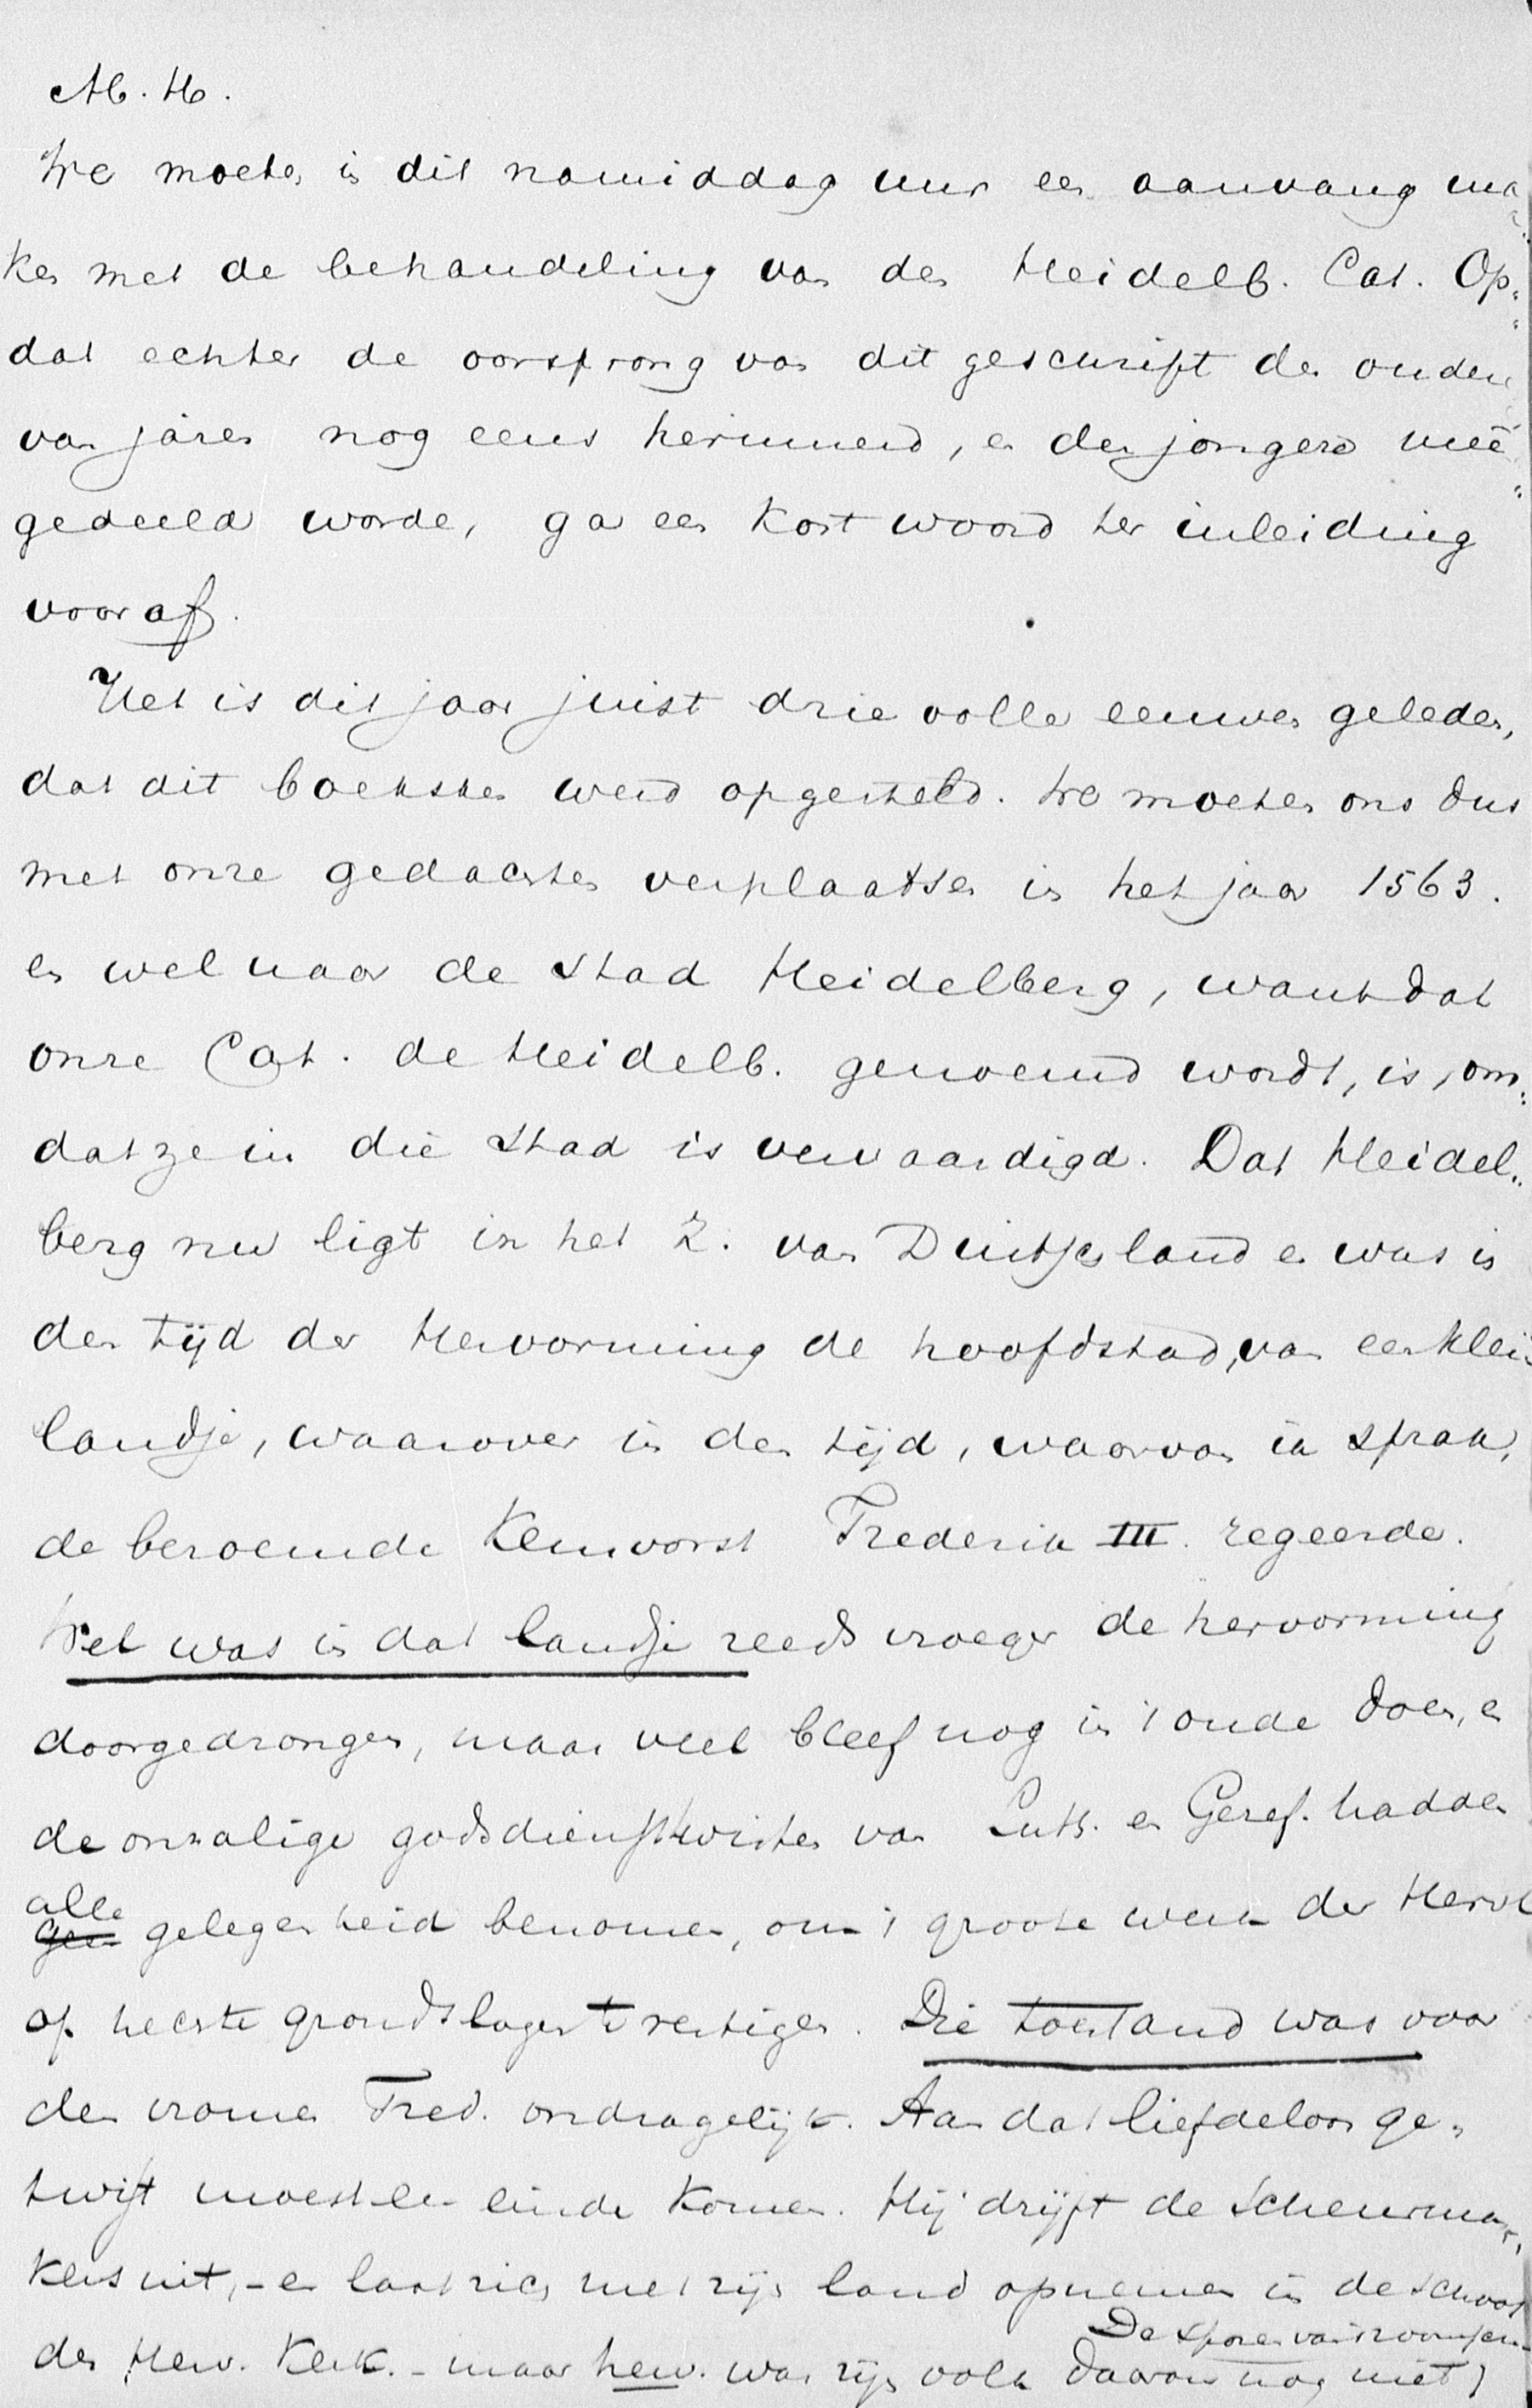 M. H.
We moeten in dit namiddag uur een aanvang ma
ken met de behandeling van den Heidelb. Cat. Op-
dat echter de oorsprong van dit geschrift de ouden
van jaren nog eens herinnerd, en den jongere meê
gedeeld worde, ga een kort woord ter inleiding
vooraf.
Het is dit jaar juist drie volle eeuwen geleden,
dat dit boekske werd opgesteld. We moeten ons dus
met onze gedachten verplaatsen in het jaar 1563.
en wel naar de stad Heidelberg, want dat
onze Cat. de Heidelb. genoemd wordt, is, om-
dat ze in die stad is vervaardigd. Dat Heidel-
berg nu ligt in het Z. van Duitschland en was in
den tijd der Hervorming de hoofdstad, van een klein
landje, waarover in den tijd, waarvan ik sprak,
de beroemde Keurvorst Frederik III. regeerde.
Wel was in dat landje reeds vroeger de hervorming
doorgedrongen, maar veel bleef nog in 't oude doen, en
de onzalige godsdiensttwisten van Luth. en Geref. hadden
alle
geen gelegenheid benomen, om 't groote werk der Herv
op hechte grondslagen te vestigen. Die toestand was voor
den vromen Fred. ondragelijk. Aan dat liefdeloos ge-
twist moest een einde komen. Hij drijft de scheurma-
kers uit, - en laat zich met zijn land opnemen in de schoot
De sporen van
der Herv. Kerk. - maar herv. was zijn volk daarom nog niet)